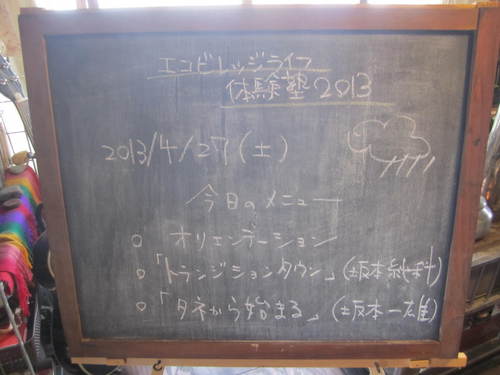 エコビレッジライフ
体験塾2013
2013/4/27(土)
今日のメニュー
○ オリエンテーション
○「トランジションタウン」(坂本
○「タネから始まる」(坂本一雄)